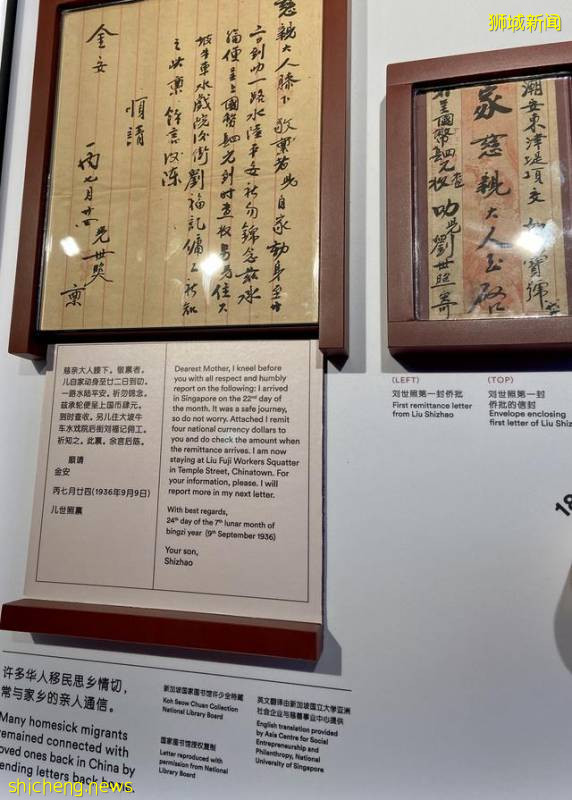 狮城新闻
慈親大人膝下 敬禀者兒自家動身至廿
二日到叻一路水陸平安祈勿錦念茲承
輪便呈上國幣肆元到时查收另兒住大
坡牛車水戲院後街劉福記傭工祈知
之此禀 餘言後陳
順請
金安
丙七月廿四 兒世照 禀
潮安東津堤頂交
家慈親大人玉啟
呈國幣肆元查收 叻兒劉世照寄
慈亲大人膝下。敬禀者。
儿自家动身至廿二日到叻。
一路水陆平安。祈勿锦念。
兹承轮便呈上国币肆元。
到时查收。另儿住大坡牛
车水戏院后街刘福记佣工。
祈知之。此禀。余言后陈。
顺请
金安
丙七月廿四(1936年9月9日)
儿世照禀
Dearest Mother, I kneel before
you with all respect and humbly
report on the following: I arrived
in Singapore on the 22nd day of
the month. It was a safe journey,
so do not worry. Attached I remit
four national currency dollars to
you and do check the amount when
the remittance arrives. I am now
staying at Liu Fuji Workers Squatter
in Temple Street, Chinatown. For
your information, please. I will
report more in my next letter.
With best regards,
24th day of the 7th lunar month of
bingzi year (9th September 1936)
Your son,
Shizhao
(LEFT)
刘世照第一封侨批
First remittance letter
from Liu Shizhao
(TOP)
刘世照第一封
侨批的信封
Envelope enclosing
first letter of Liu Shiz
18
许多华人移民思乡情切，
常与家乡的亲人通信。
Many homesick migrants
remained connected with
loved ones back in China by
sending letters back home.
新加坡国家图书馆许少全特藏
Koh Seow Chuan Collection
National Library Board
国家图书馆授权复制
Letter reproduced with
permission from National
Library Board
英文翻译由新加坡国立大学亚洲
社会企业与慈善事业中心提供
English translation provided
by Asia Centre for Social
Entrepreneurship and
Philanthropy, National
University of Singapore
shicheng.news